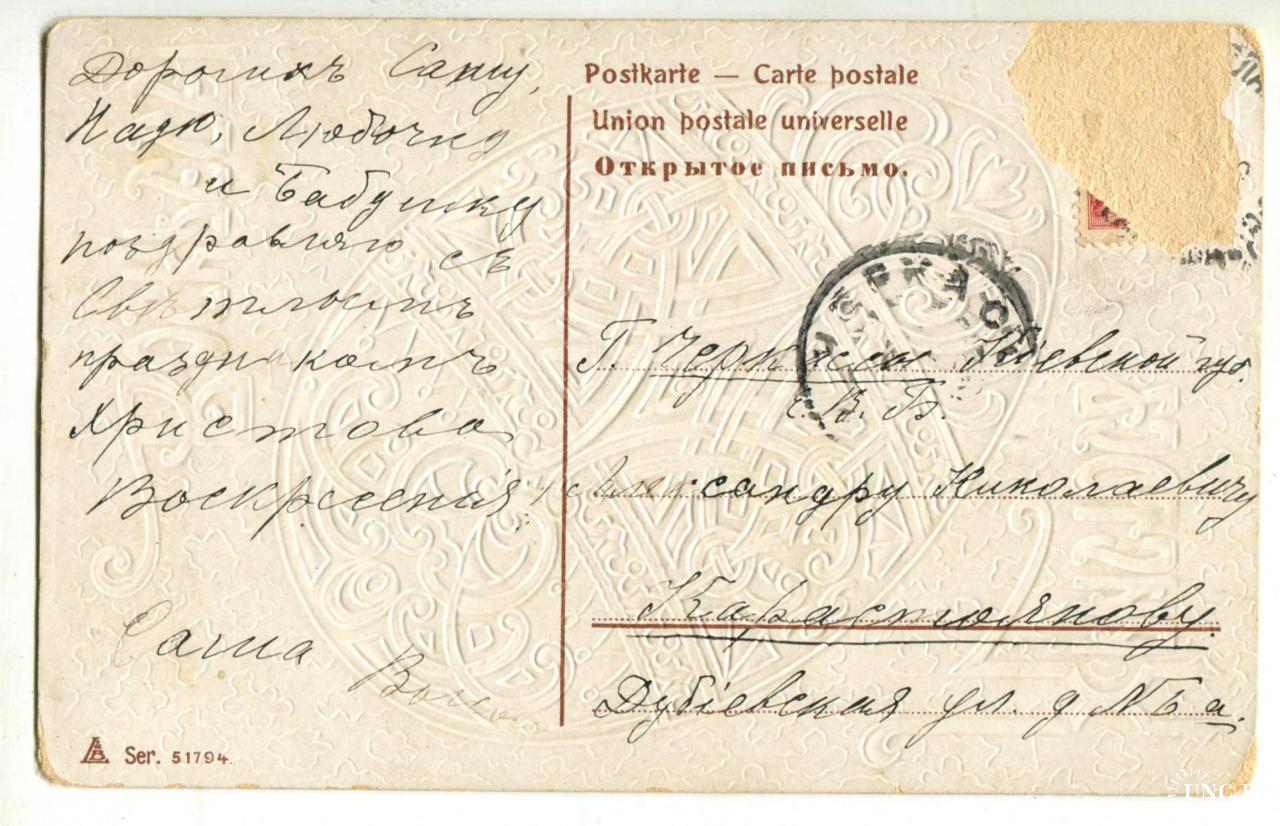 Дорогихъ Сашу,
Надю, Любочку
и Бабушку
поздравляю съ
Свѣтлымъ
праздникомъ
Христова
Воскресенія!
Саша
Ser. 51794.
Postkarte — Carte postale
Union postale universelle
Открытое письмо.
ЧЕРКАС
Г. Черкассы Кіевской губ.
Е. В. Б.
Александру Николаевичу
Карастоянову.
Дубіевская ул. д №
UNC